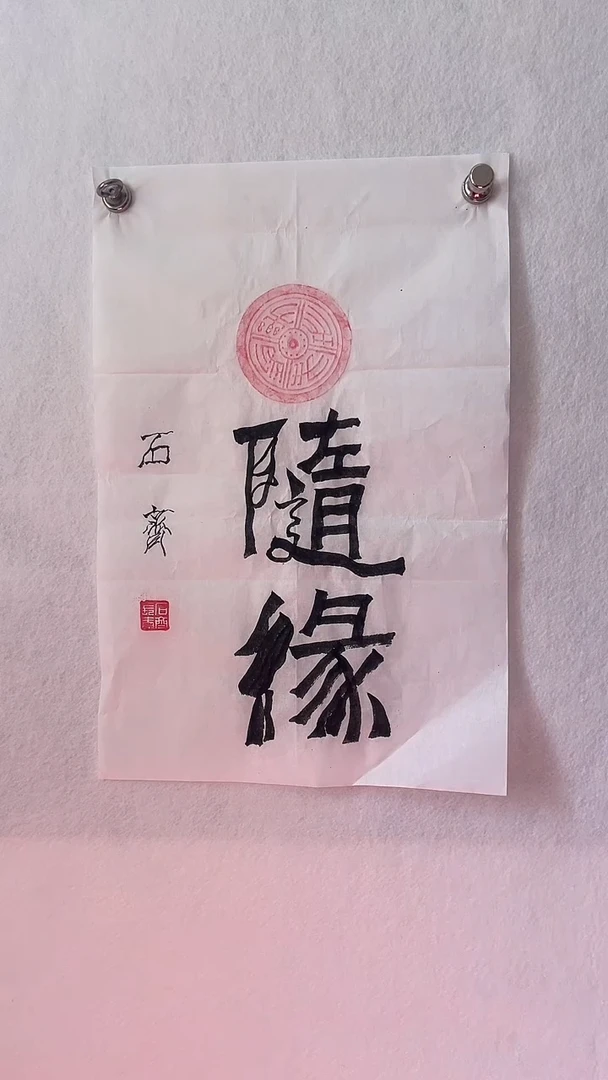 隨緣
石齋